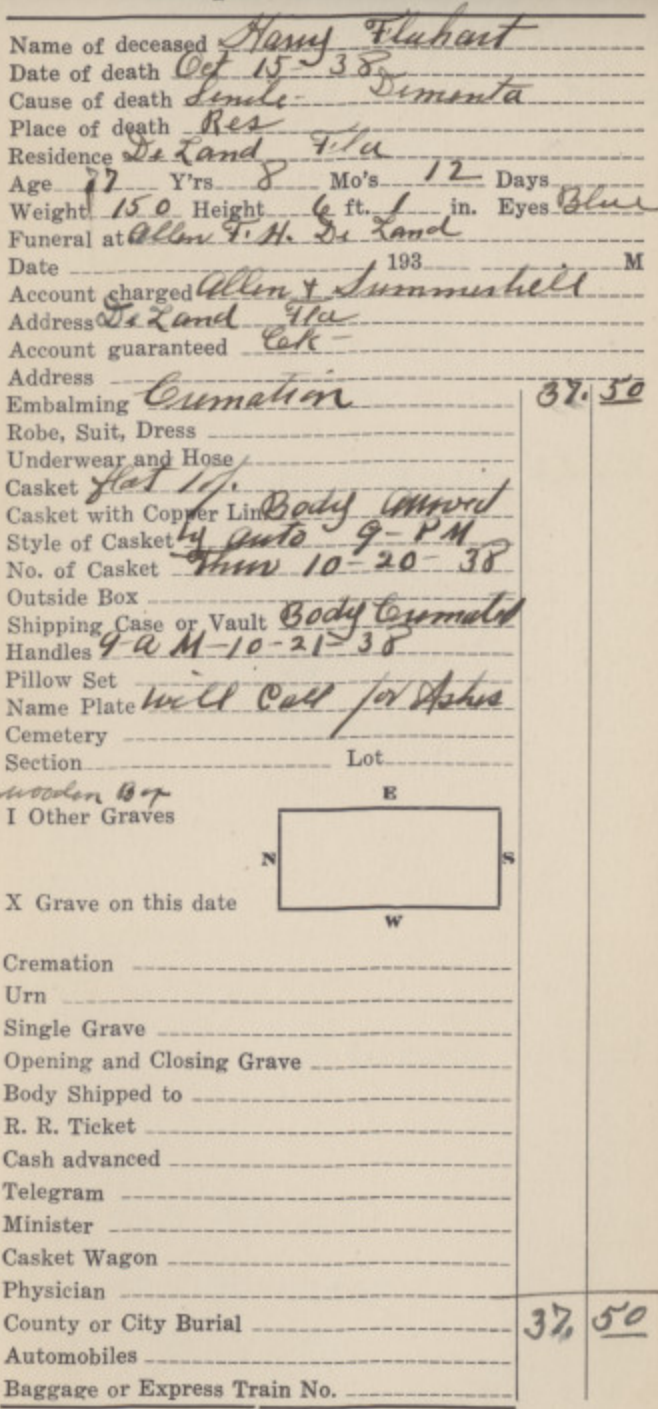 Name of deceased Harry Fluhart
Date of death Oct 15 - 38
Cause of death Senile - Dimenta
Place of death Res
Residence De Land Fla
Age 77 Y'rs 8 Mo's 12 Days
Weight 150 Height 6 ft. 1 in. Eyes Blue
Funeral at Allen F. H. De Land
Date 193 M
Account charged Allen & Summerhill
Address De Land Fla
Account guaranteed Ck -
Address
Embalming Cremation 37.50
Robe, Suit, Dress
Underwear and Hose
Casket flat
Casket with Copper Lin Body arrived
Style of Casket by auto 9 - PM
No. of Casket Thur 10-20-38
Outside Box
Shipping Case or Vault Body Cremated
Handles 9-A M-10-21-38
Pillow Set
Name Plate Will Call for Ashes
Cemetery
Section Lot
wooden Box
I Other Graves
E
N S
X Grave on this date
W
Cremation
Urn
Single Grave
Opening and Closing Grave
Body Shipped to
R. R. Ticket
Cash advanced
Telegram
Minister
Casket Wagon
Physician
County or City Burial 37.50
Automobiles
Baggage or Express Train No.